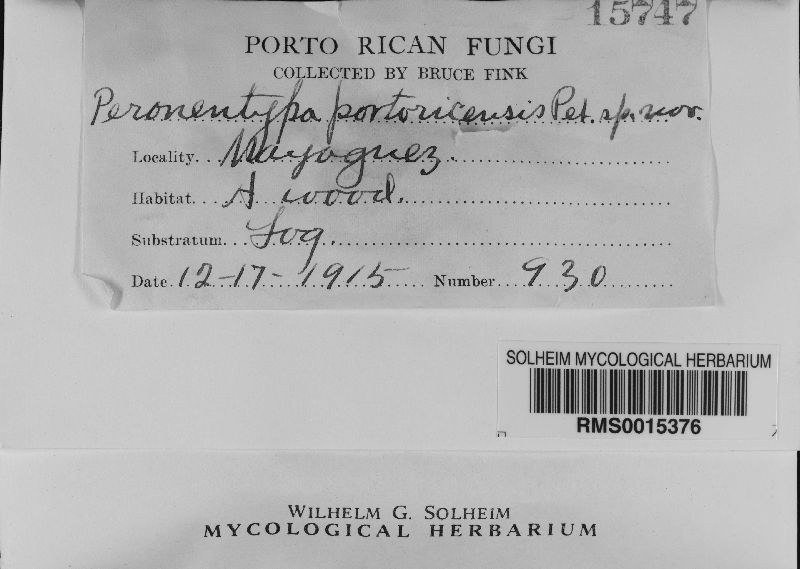 15747
PORTO RICAN FUNGI
COLLECTED BY BRUCE FINK
Peronentypa portoricensis Pet. sp. nov.
Locality. . Mayaguez.
Habitat. . . A wood.
Substratum. . . Log
Date. 12-17-1915 Number. . . 930
SOLHEIM MYCOLOGICAL HERBARIUM
RMS0015376
WILHELM G. SOLHEIM
MYCOLOGICAL HERBARIUM